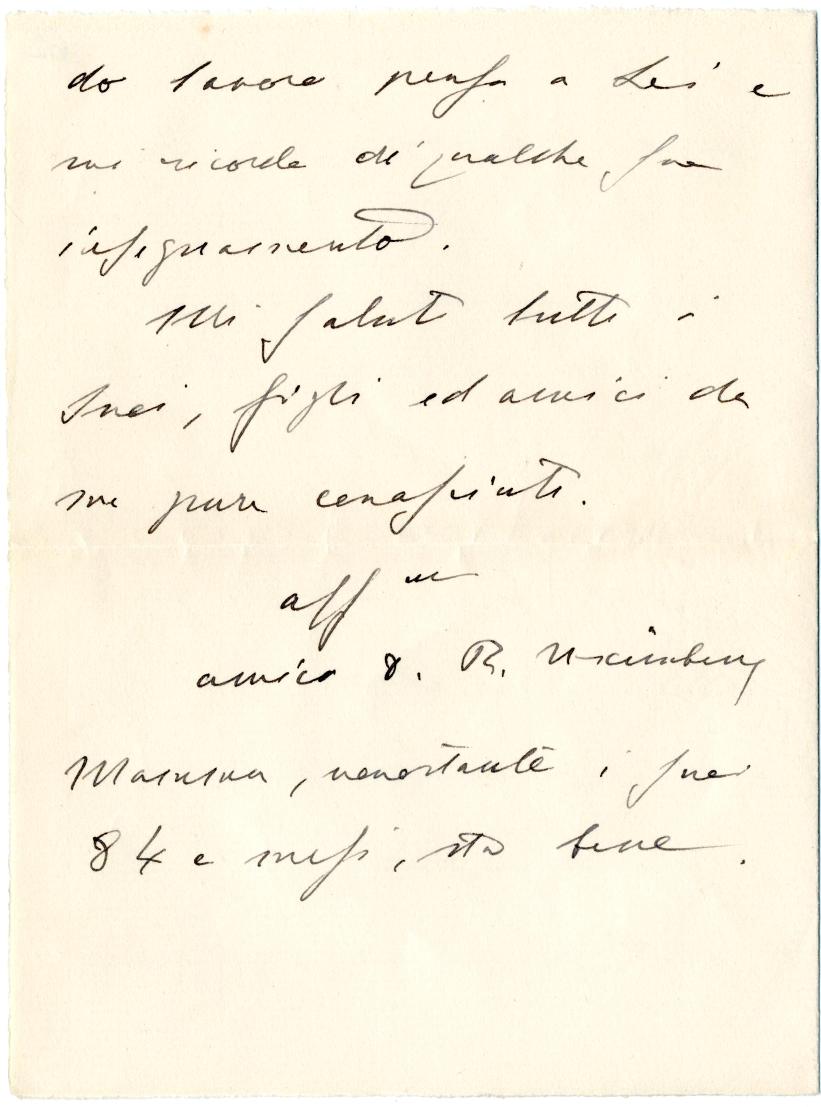 do lavoro penso a Lei e
mi ricordo di qualche suo
insegnamento.
Mi saluti tutti i
Suoi, figli ed amici da
me pure conosciuti.
aff mo
amico d. R.
Mamma, nonostante i suoi
84 e mesi, sta bene.